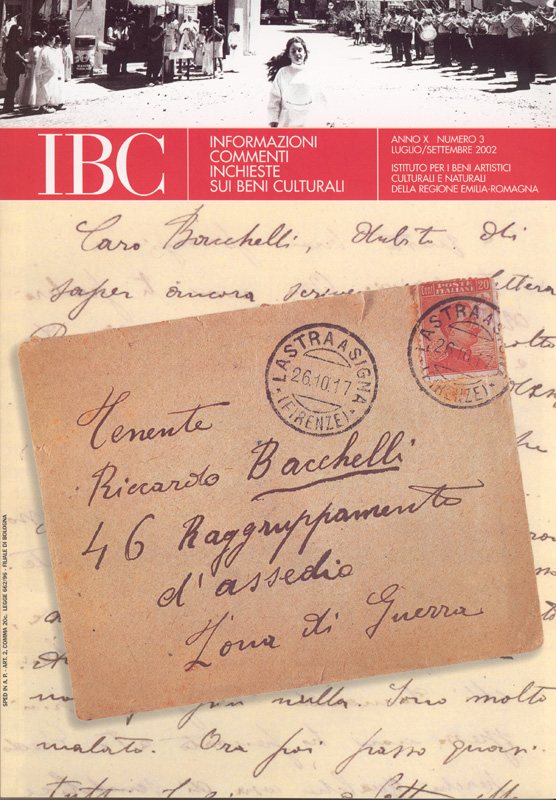 IBC
INFORMAZIONI
COMMENTI
INCHIESTE
SUI BENI CULTURALI
ANNO X NUMERO 3
LUGLIO/SETTEMBRE 2002
ISTITUTO PER I BENI ARTISTICI
CULTURALI E NATURALI
DELLA REGIONE EMILIA-ROMAGNA
Caro Bacchelli, dubito di
saper ancora scrivere lettera
POSTE
ITALIANE
20
LASTRA A SIGNA
26.10.17
(FIRENZE)
LASTRA A SIGNA
26.10.17
(FIRENZE)
Tenente
Riccardo Bacchelli
46 Raggruppamento
d'assedio
Zona di Guerra
nulla. Sono molto
malato. Ora poi passo quasi
SPED IN A. P. - ART. 2, COMMA 20c. LEGGE 662/96 - FILIALE DI BOLOGNA